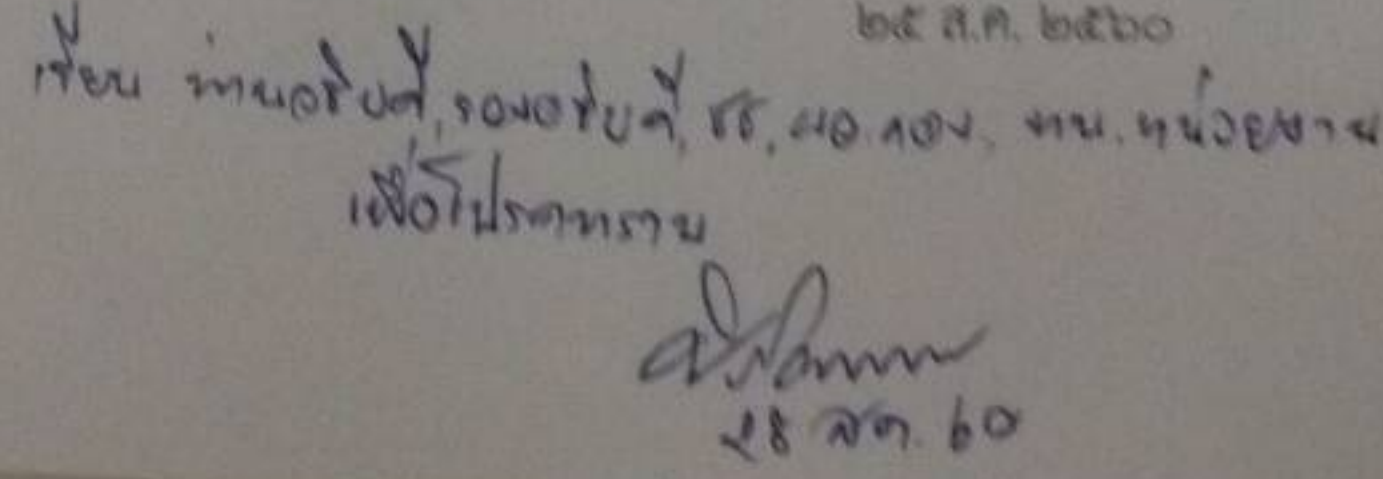 ๒๕ ส.ค. ๒๕๖๐
เรียน ท่านอธิบดี, รองอธิบดี, ชธ, ผอ.กอง, หน.หน่วยงาน
เพื่อโปรดทราบ
28 สค. 60